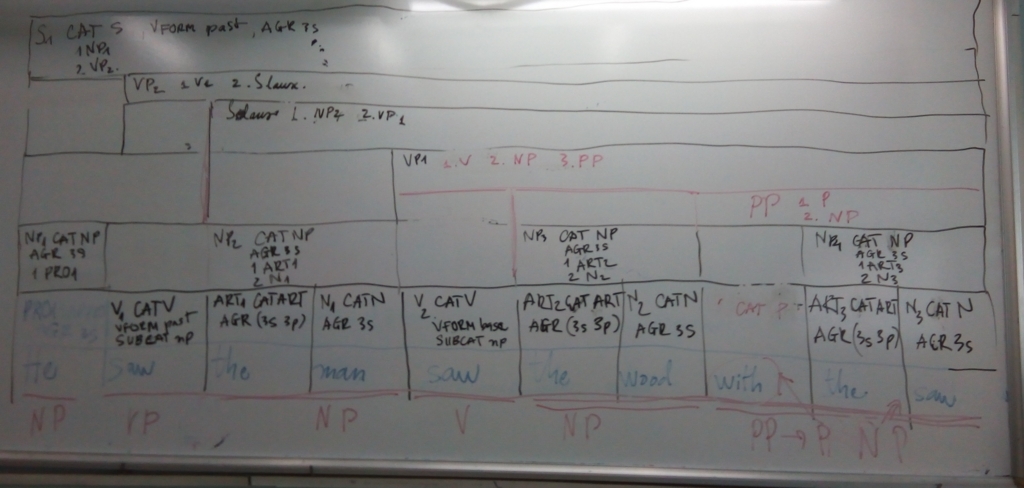 S1 CAT S VFORM past, AGR 3s
1 NP1
2. VP2.
VP2 1. V2 2. Sclaux.
Sclause 1. NP2 2. VP1
VP1 1. V 2. NP 3. PP
PP 1. P
2. NP
NP1 CAT NP
AGR 3S
1 PRO1
NP2 CAT NP
AGR 3S
1 ART1
2 N1
NP3 CAT NP
AGR 3S
1 ART2
2 N2
NP4 CAT NP
AGR 3S
1 ART3
2 N3
PRO1
AGR 3s
V1 CAT V
VFORM past
SUBCAT np
ART1 CAT ART
AGR (3s 3p)
N1 CAT N
AGR 3s
V2 CAT V
VFORM base
SUBCAT np
ART2 CAT ART
AGR (3s 3p)
N2 CAT N
AGR 3S
CAT P
ART3 CAT ART
AGR (3s 3p)
N3 CAT N
AGR 3s
He saw the man saw the wood with the saw
NP VP NP V NP PP → P NP